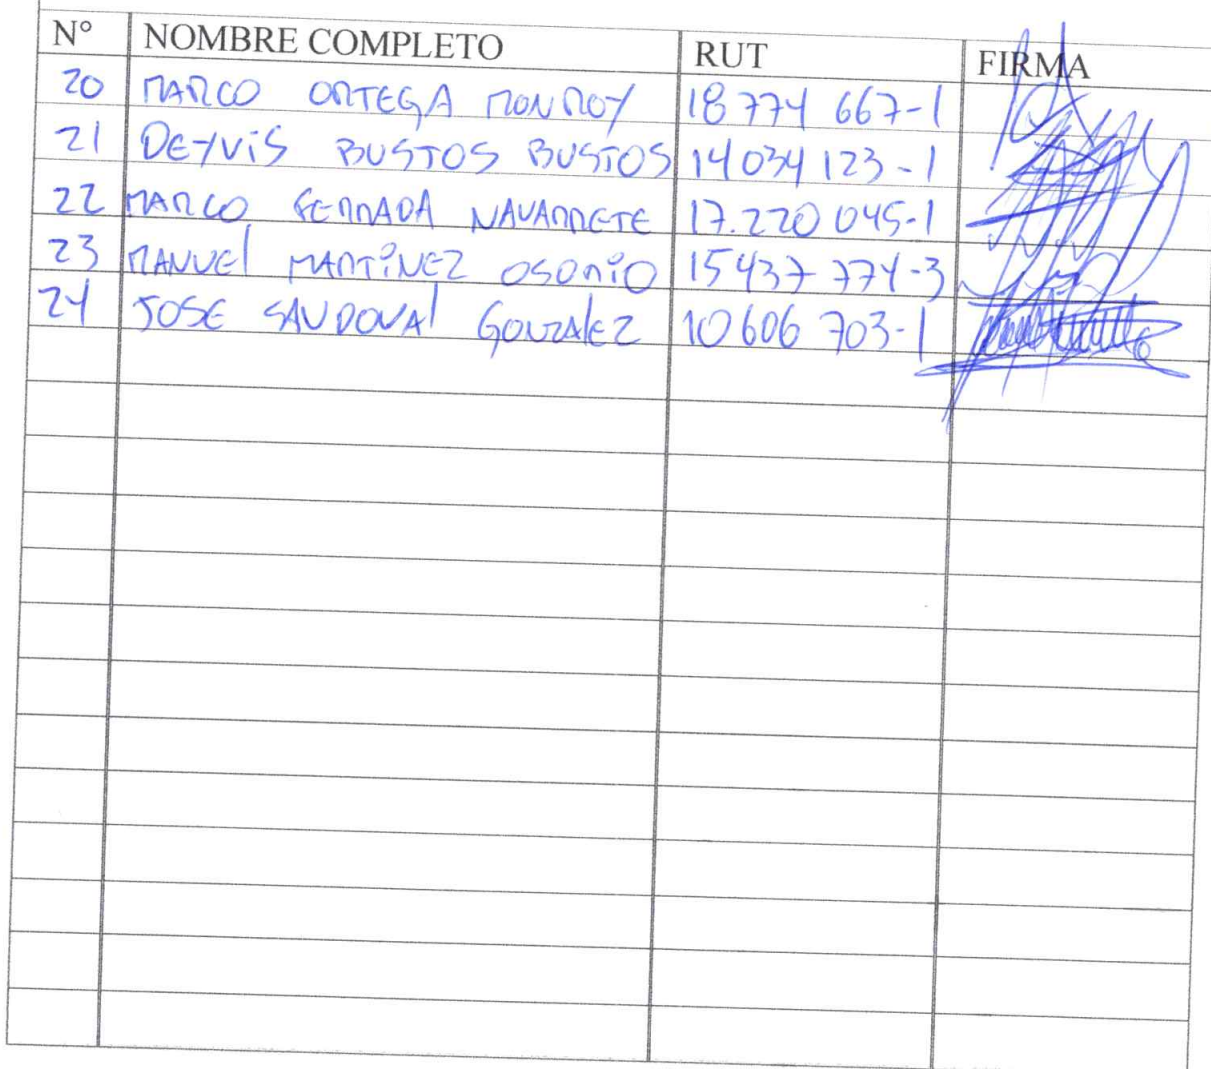 N° NOMBRE COMPLETO RUT FIRMA
20 MARCO ORTEGA MONROY 18 774 667-1
21 DEYVIS BUSTOS BUSTOS 14 034 123-1
22 MARCO FERRADA NAVARRETE 17.220 045-1
23 MANUEL MARTINEZ OSORIO 15 437 774-3
24 JOSE SANDOVAL GONZALEZ 10 606 703-1